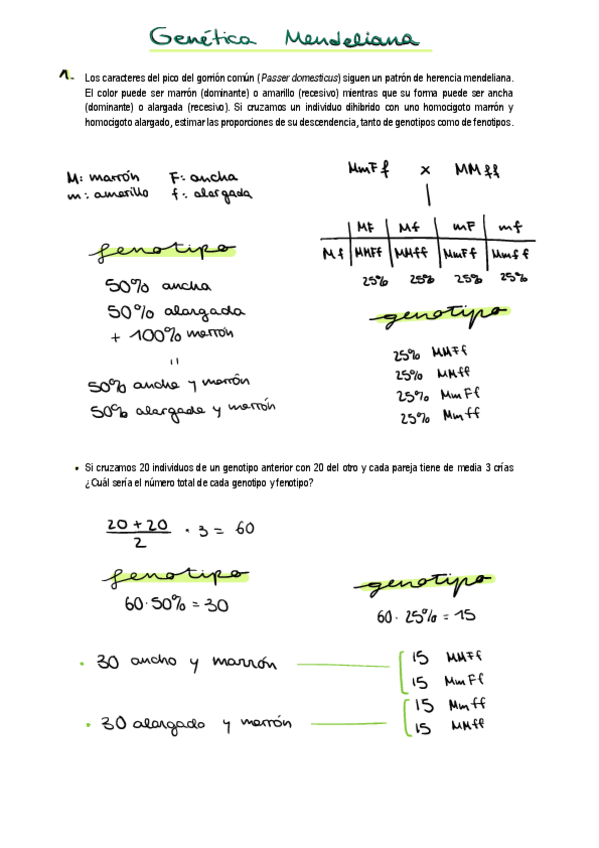 Genética Mendeliana
1. Los caracteres del pico del gorrión común (Passer domesticus) siguen un patrón de herencia mendeliana.
El color puede ser marrón (dominante) o amarillo (recesivo) mientras que su forma puede ser ancha
(dominante) o alargada (recesivo). Si cruzamos un individuo dihibrido con uno homocigoto marrón y
homocigoto alargado, estimar las proporciones de su descendencia, tanto de genotipos como de fenotipos.
M: marrón F: ancha
m: amarillo f: alargada
MmFf x MMff
MF Mf mF mf
Mf MMFf MMff MmFf Mmff
25% 25% 25% 25%
fenotipo
50% ancha
50% alargada
+ 100% marrón
=
50% ancha y marrón
50% alargada y marrón
genotipo
25% MMFf
25% MMff
25% MmFf
25% Mmff
• Si cruzamos 20 individuos de un genotipo anterior con 20 del otro y cada pareja tiene de media 3 crías
¿Cuál sería el número total de cada genotipo y fenotipo?
20 + 20
2
· 3 = 60
fenotipo
60·50% = 30
genotipo
60· 25% = 15
• 30 ancho y marrón
15 MMFf
15 MmFf
• 30 alargado y marrón
15 Mmff
15 MMff